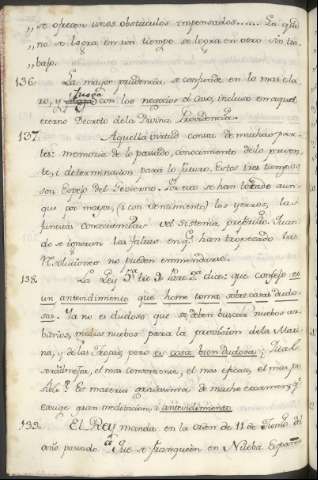 „ se ofrecen unos obstáculos impensados..... Lo que
„ no se logra en un tiempo se logra en otro sin tra-
bajo.
136. La mayor prudencia se confunde en lo mas cla-
ro, y Juega con los negocios el Acaso, incluso en aquel
eterno Decreto de la Divina Providencia.
137. Aquella virtud consta de muchas par-
tes: memoria de lo pasado, conocimiento de lo presen-
te, i determinacion para lo futuro. Estos tres tiempos
son Espejo del Govierno. Por eso se han tocado aun-
que por mayor, (i con sentimiento) los yerros, las
funestas consecuencias del sistema preferido. Quan-
do se ignoran las faltas en q.e han tropezado las
Resoluciones no pueden enmendarse.
138. La Ley dice: que consejo es
un antendimiento que home toma sobre cosas dudo-
sas. Ya no es dudoso que se deben buscar nuevos ar-
bitrios, medios nuevos para la provision de la Mari-
na, y de las Tropas, pero es cosa bien dudosa; Qual es
el mas conveniente, el mas eficaz, el mas
Es materia gravissima de mucho examen, y
exige gran meditacion, i antendimiento.
139. El Rey manda en la orden de 11 de
año pasado: Que se franqueen en Nueva España